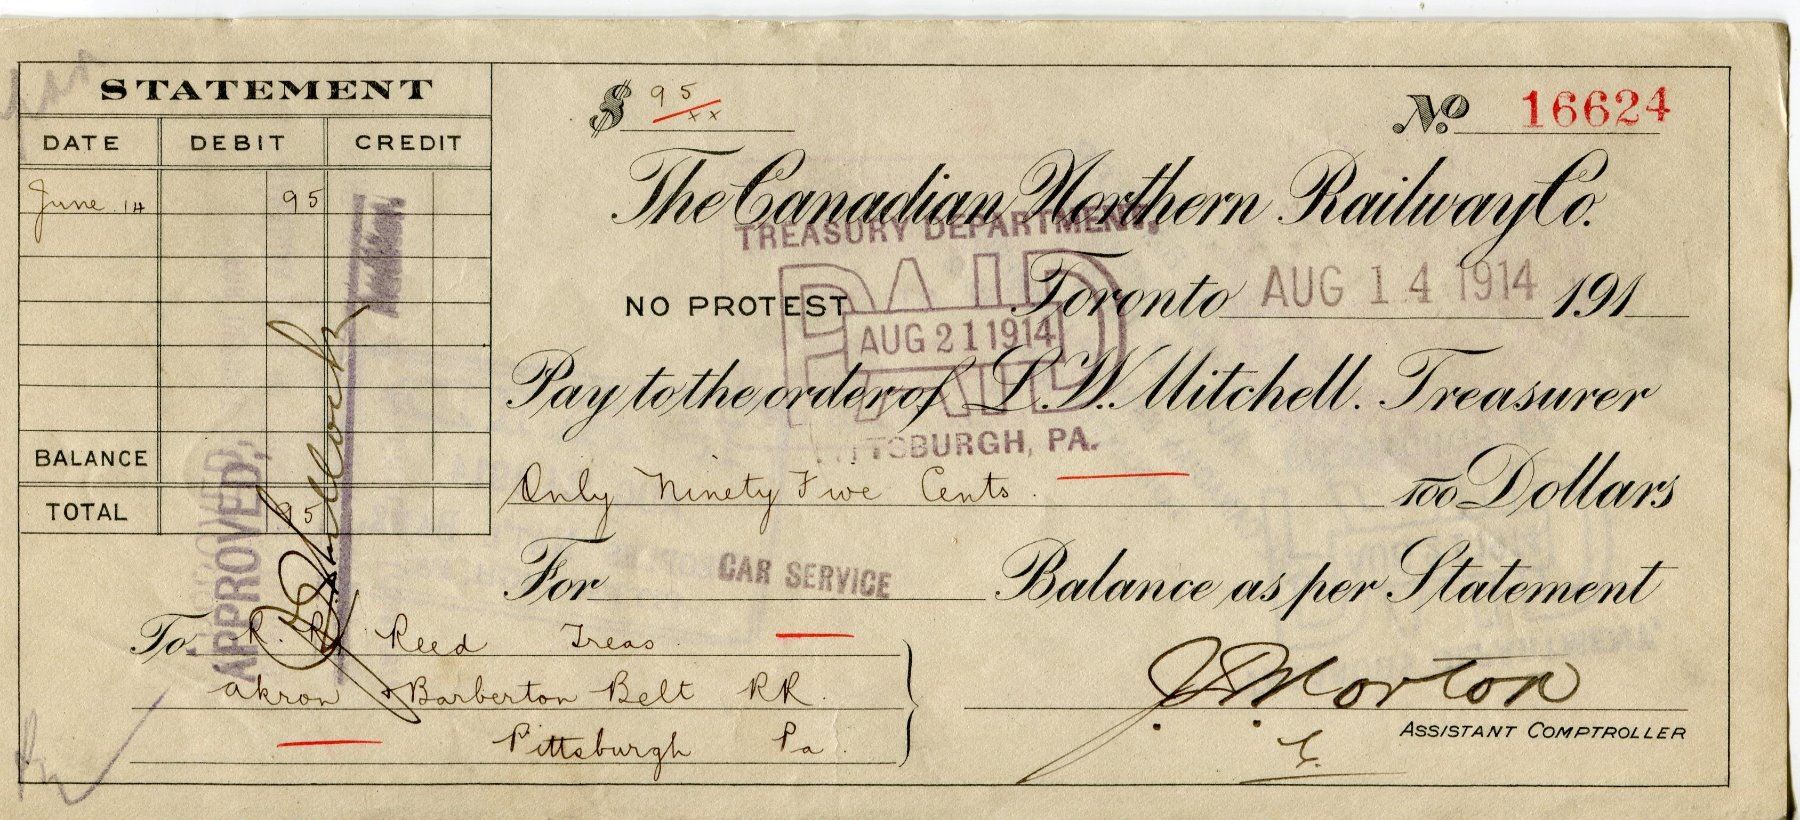 STATEMENT
DATE DEBIT CREDIT
June 14 95
BALANCE
TOTAL 95
APPROVED,
$ 95/xx
No 16624
The Canadian Northern Railway Co.
TREASURY DEPARTMENT,
PAID
NO PROTEST Toronto AUG 14 1914 191
AUG 21 1914
Pay to the order of L.W. Mitchell. Treasurer
PITTSBURGH, PA.
Only Ninety Five Cents. 100 Dollars
For CAR SERVICE Balance as per Statement
To R. R. Reed Treas.
Akron & Barberton Belt RR.
Pittsburgh Pa.
J.D. Morton
ASSISTANT COMPTROLLER